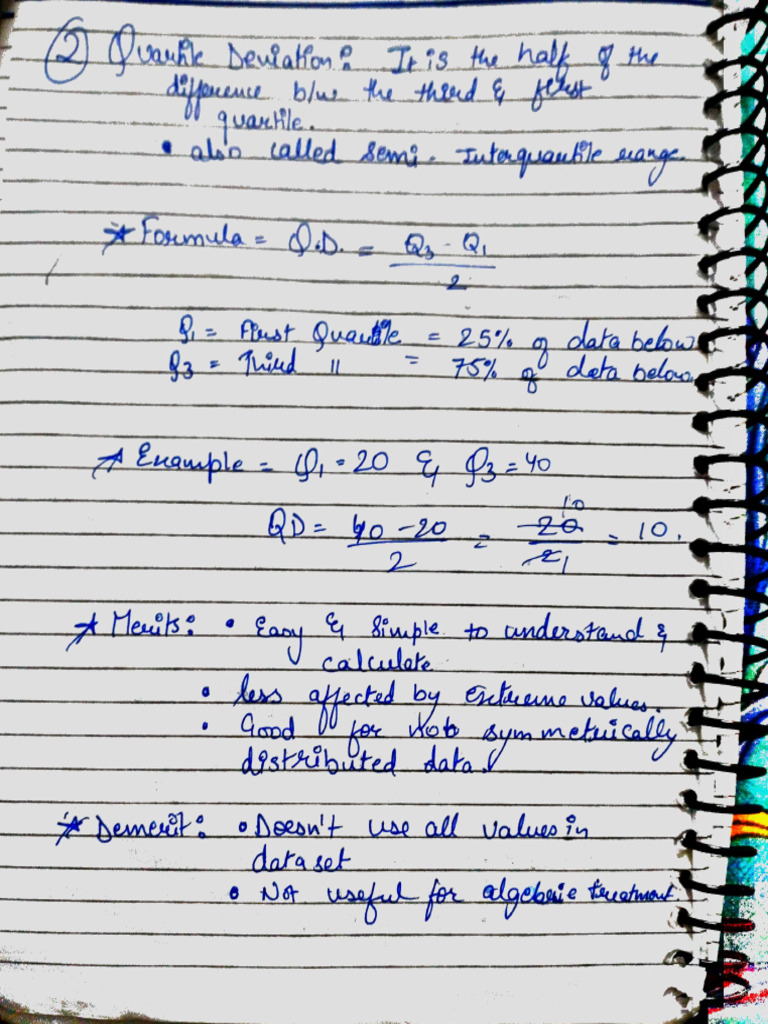 ② Quartile Deviation: It is the half of the
difference b/w the third & first
quartile.
• also called semi. Interquartile range.
* Formula = Q.D. = Q3 - Q1 / 2
Q1 = First Quartile = 25% of data below
Q3 = Third " = 75% of data below
* Example = Q1 = 20 & Q3 = 40
QD = 40 - 20 / 2 = 20 10 / 2 1 = 10.
* Merits: • Easy & Simple to understand &
calculate
• less affected by Extreme values.
• Good for symmetrically
distributed data.
* Demerit: • Doesn't use all values in
data set
• Not useful for algebric treatment.